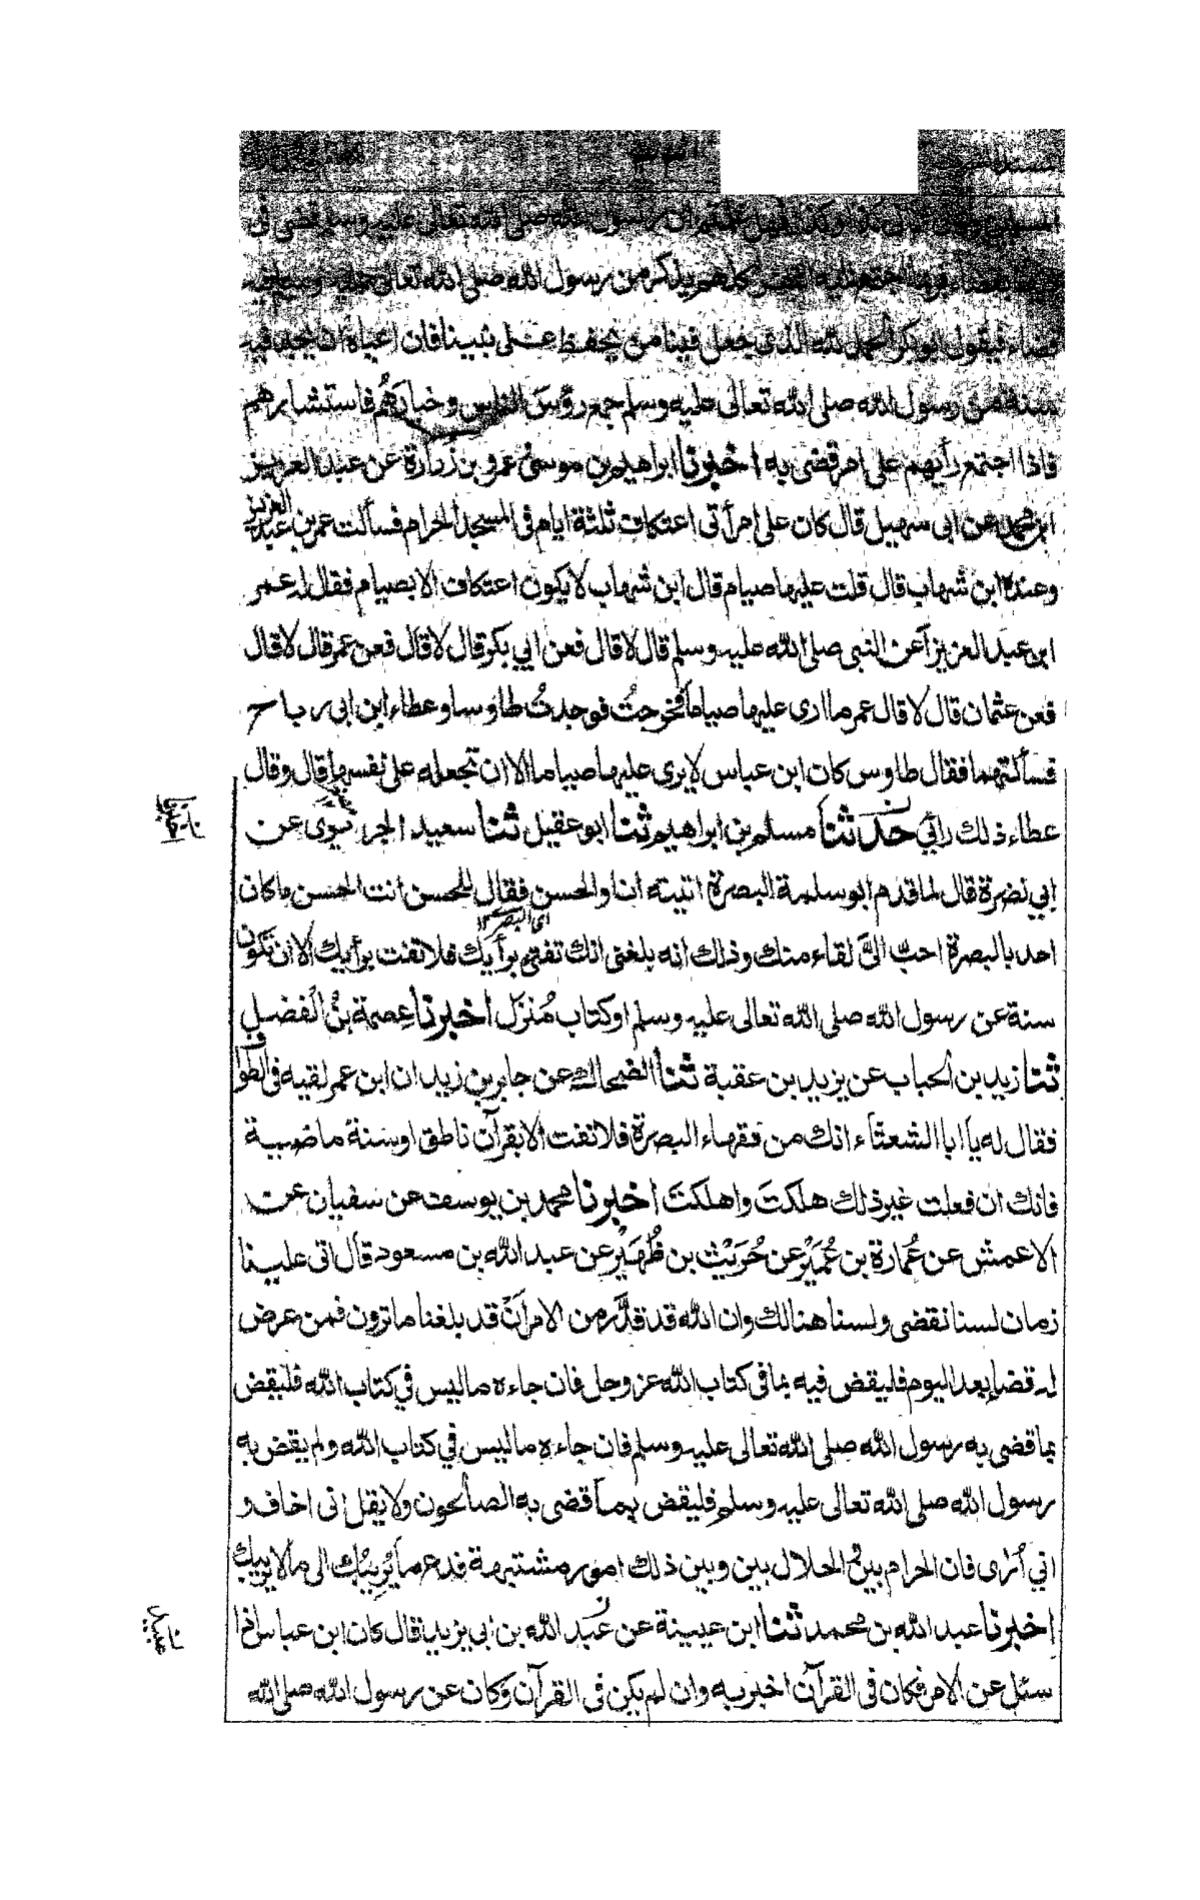 المسلمين وقال اتانى كذا وكذا فهل علمتم ان رسول الله صلى الله تعالى عليه وسلم قضى فى
ذلك بقضاء فربما اجتمع اليه النفر كلهم يذكر من رسول الله صلى الله تعالى عليه وسلم فيه
قضاء فيقول ابو بكر الحمد لله الذى جعل فينا من يحفظ على نبينا فان اعياه ان يجد فيه
سنة من رسول الله صلى الله تعالى عليه وسلم جمع رؤس الناس وخيارهم فاستشارهم
فاذا اجتمع رأيهم على امر قضى به اخبرنا ابراهيم بن موسى وعمرو بن زرارة عن عبد العزيز
ابن محمد عن ابى سهيل قال كان على امرأتى اعتكاف ثلثة ايام فى المسجد الحرام فسألت عمر بن عبد العزيز
وعنده ابن شهاب قال قلت عليها صيام قال ابن شهاب لا يكون اعتكاف الا بصيام فقال له عمر
ابن عبد العزيز أعن النبى صلى الله عليه وسلم قال لا قال فعن ابي بكر قال لا قال فعن عمر قال لا قال
فعن عثمان قال لا قال عمر ما ارى عليها صياما فخرجتُ فوجدتُ طاوسا وعطاء ابن ابى رباح
فسألتهما فقال طاوس كان ابن عباس لا يرى عليها صياما الا ان تجعله على نفسها قال وقال
عطاء ذلك رأيي حدثنا مسلم بن ابراهيم ثنا ابو عقيل ثنا سعيد الجريرى عن
ابي نضرة قال لما قدم ابو سلمة البصرة اتيته انا والحسن فقال للحسن انت الحسن ما كان
اى البصرى
احد بالبصرة احبّ الىّ لقاء منك وذلك انه بلغنى انك تفتى برأيك فلا تفت برأيك الا ان تكون
سنة عن رسول الله صلى الله تعالى عليه وسلم او كتاب مُنْزَل اخبرنا عصمة بنُ الفضل
ثنا زيد بن الحباب عن يزيد بن عقبة ثنا الضحاك عن جابر بن زيد ان ابن عمر لقيه فى الطواف
فقال له يا ابا الشعثاء انك من فقهاء البصرة فلا تفت الا بقرآن ناطق او سنة ماضية
فانك ان فعلت غير ذلك هلكتَ واهلكتَ اخبرنا محمد بن يوسف عن سفيان عن
الاعمش عن عُمارة بن عُمَيْر عن حُرَيْث بن ظُهَيْر عن عبد الله بن مسعود قال اتى علينا
زمان لسنا نقضى ولسنا هنالك وان الله قد قدّر من الامر اَنْ قد بلغنا ما ترون فمن عرض
له قضاء بعد اليوم فليقض فيه بما فى كتاب الله عز وجل فان جاءه ما ليس في كتاب الله فليقض
بما قضى به رسول الله صلى الله تعالى عليه وسلم فان جاءه ما ليس في كتاب الله ولم يقض به
رسول الله صلى الله تعالى عليه وسلم فليقض بما قضى به الصالحون ولا يقل انى اخاف و
اني اُرٰى فان الحرام بين والحلال بين وبين ذلك امور مشتبهة فدع ما يُريبك الى ما لا يريبك
اخبرنا عبد الله بن محمد ثنا ابن عيينة عن عُبيد الله بن ابى يزيد قال كان ابن عباس اذا
سئل عن الامر فكان فى القرآن اخبر به وان لم يكن فى القرآن وكان عن رسول الله صلى الله